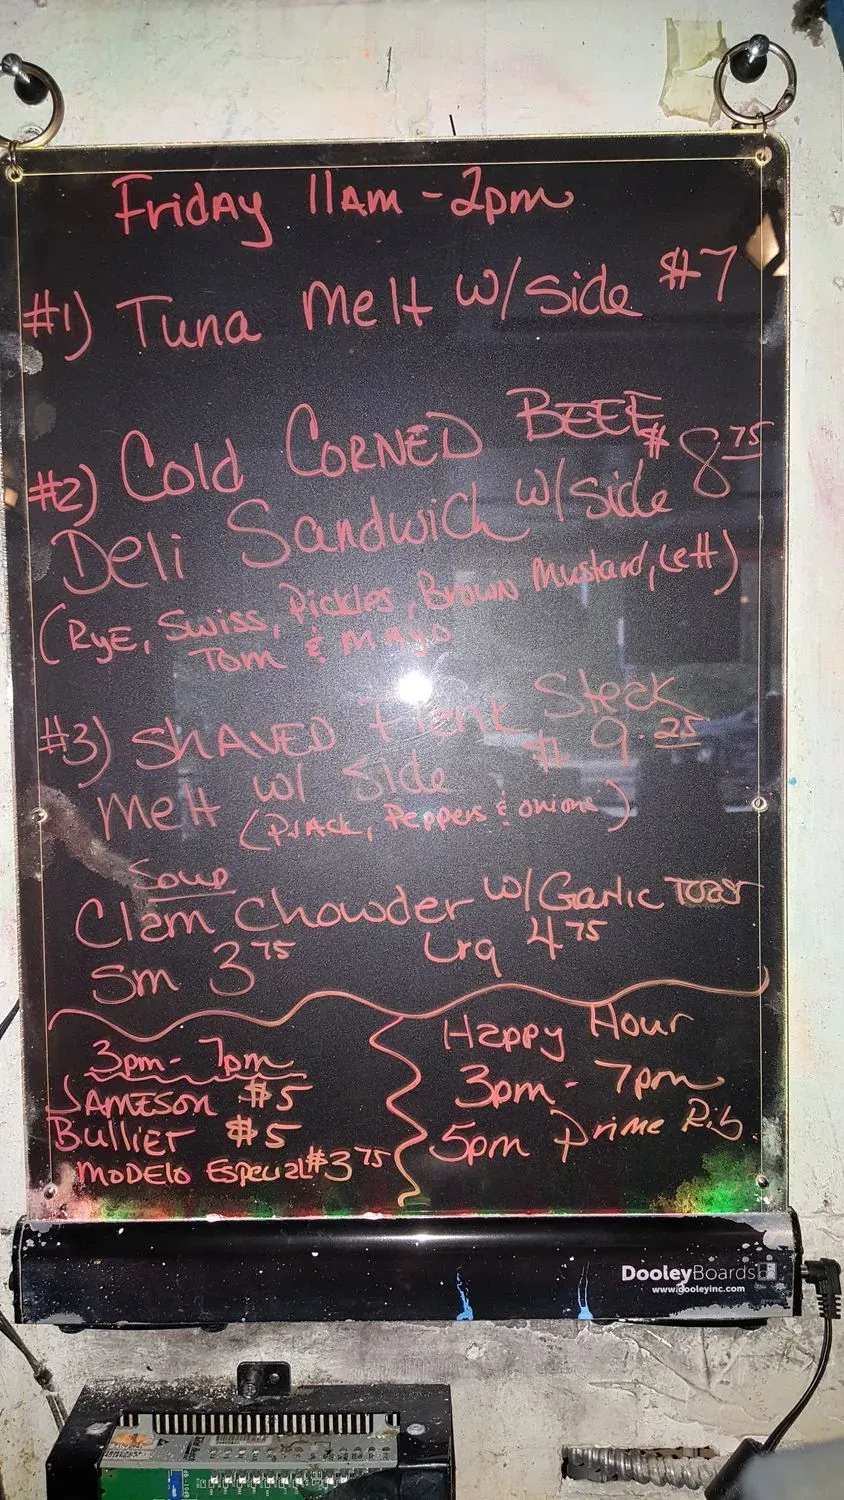 Friday 11am - 2pm
#1) Tuna melt w/ side $7
#2) Cold CORNED BEEF $8.75
Deli Sandwich w/ side
(RyE, Swiss, Pickles, Brown Mustard, Lett)
Tom & Mayo
#3) SHAVED Flank Steak
melt w/ Side $9.25
(PJACK, Peppers & onions)
Soup
Clam Chowder w/ Garlic TOAST
Sm 3.75 Lrg 4.75
3pm - 7pm
JAMESON $5
BulliET $5
MODElo Especial $3.75
Happy Hour
3pm - 7pm
5pm Prime Rib
DooleyBoards
www.dooleyinc.com